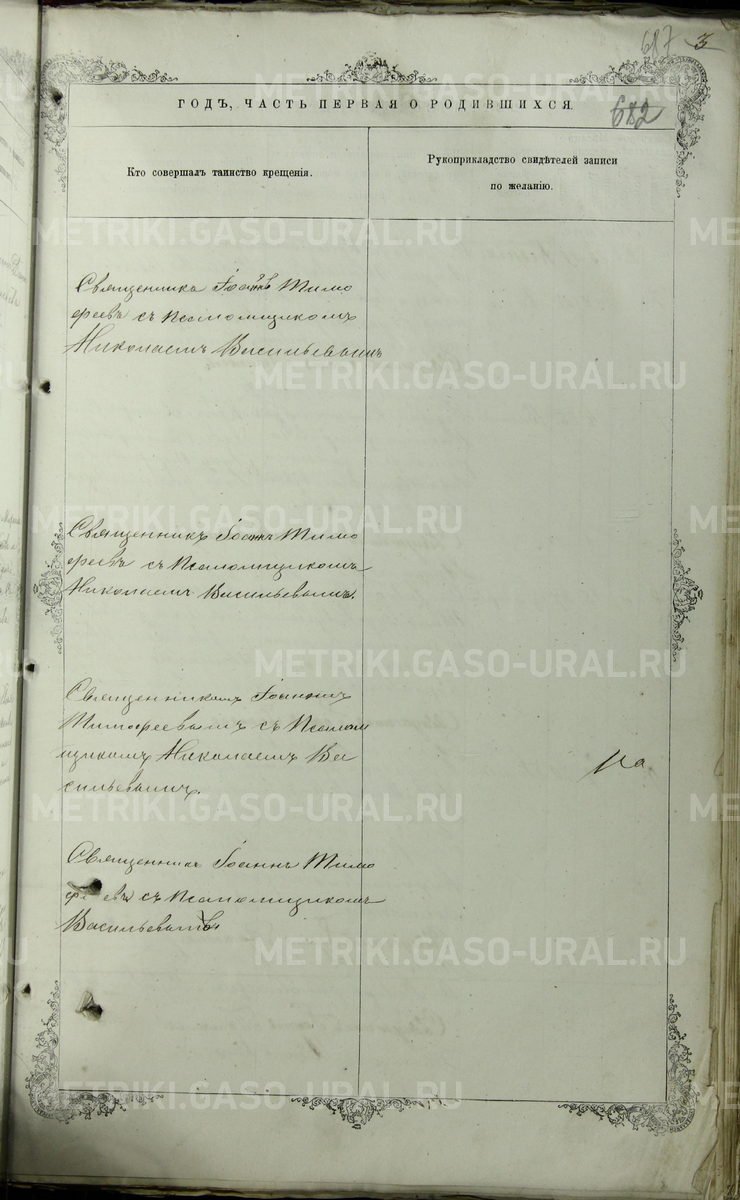 687 3
ГОДЪ, ЧАСТЬ ПЕРВАЯ О РОДИВШИХСЯ.
682
Кто совершалъ таинство крещенія.
Рукоприкладство свидѣтелей записи
по желанію.
Священника Іоаннъ Тимо
феевъ съ Псаломщикомъ
Николаемъ Васильевымъ
Священникъ Іоаннъ Тимо
феевъ съ Псаломщикомъ
Николаемъ Васильевымъ.
Священникомъ Іоанномъ
Тимофеевымъ съ Псалом
щикомъ Николаемъ Ва
сильевымъ.
Священникъ Іоаннъ Тимо
феевъ съ Псаломщикомъ
Васильевымъ
METRIKI.GASO-URAL.RU